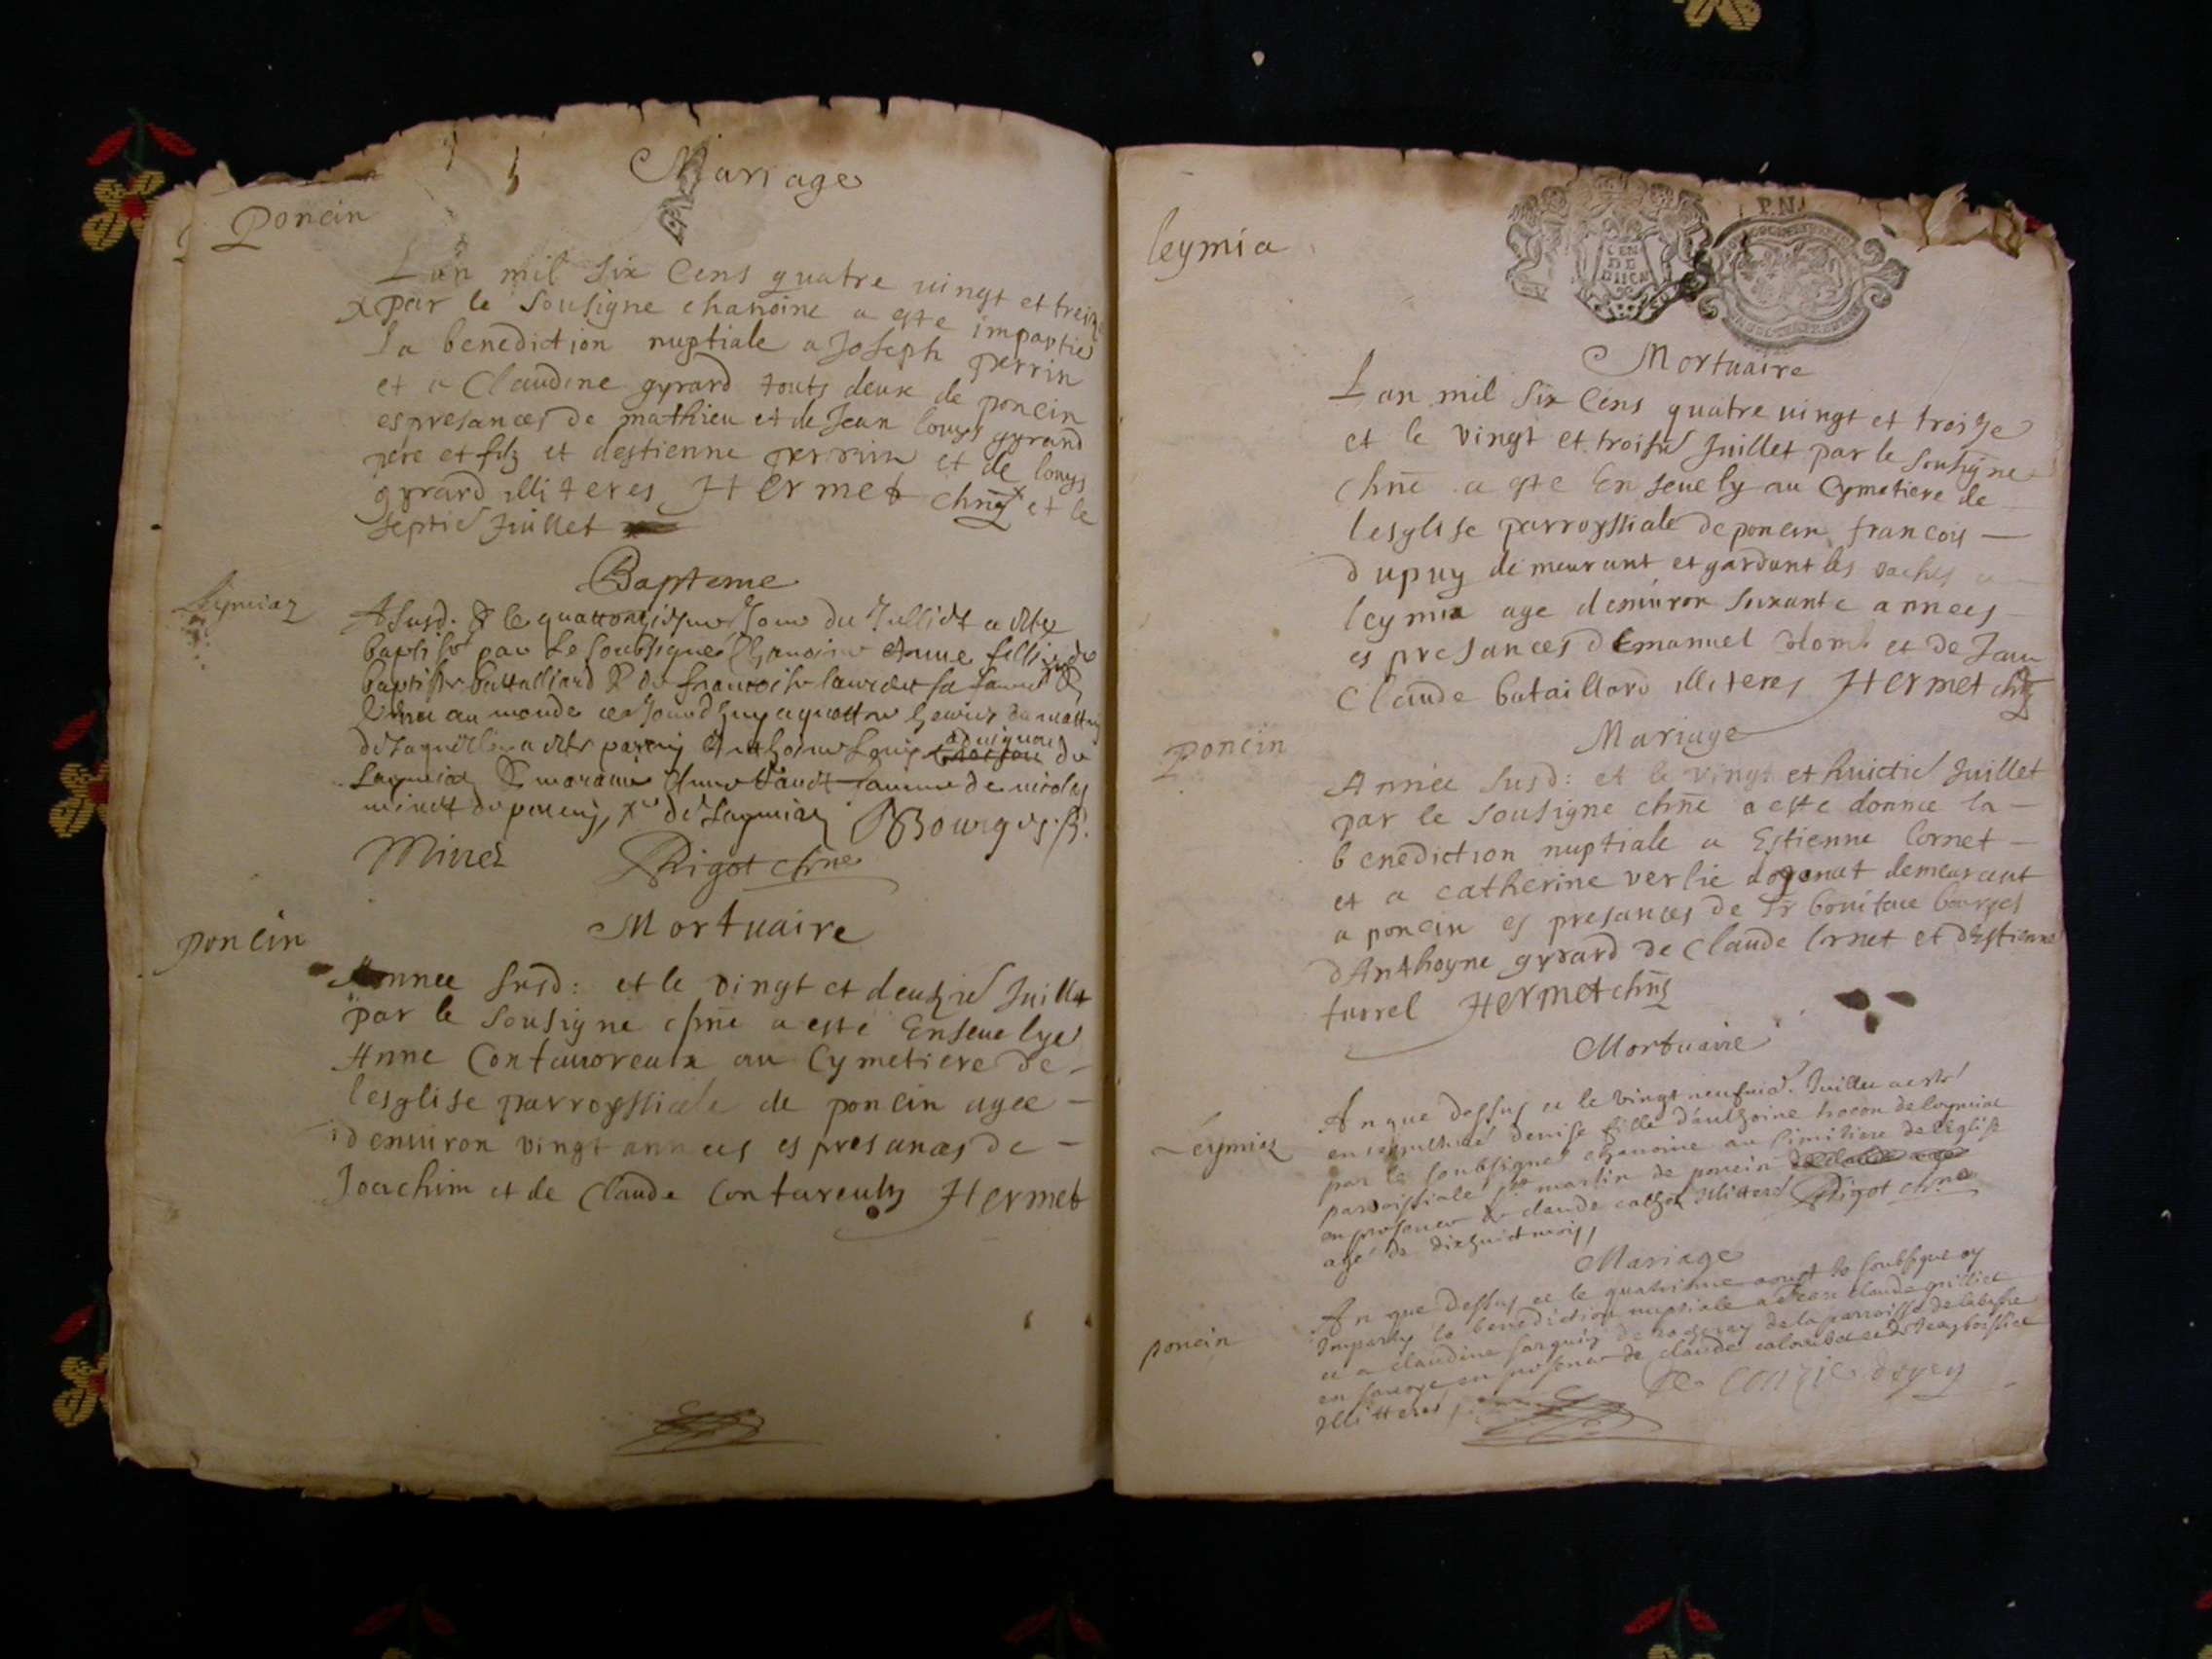 Mariage
Poncin
Lan mil six Cens quatre vingt et treize
x par le sousigne chanoine a este impartie
la benediction nuptiale a Joseph perrin
et a Claudine gyrard touts deux de poncin
es presances de mathieu et de Jean louys gyrard
pere et filz et destienne perrin et de louys
gyrard illiteres Hermet chne x et le
septie Juillet
Bapteme
Leymiaz
A susd. & le quattorziesme Jour du Julliet a este
baptise par le soubsigne Chanoine Anne fillie de
baptiste battalliard & de francoise sa fame
au monde ce Jourdhuy a quattre heures du mattin
de laquelle a este parrin Anthoine Louis de
Leymiaz & maraine Anne famme de nicolas
minet de poncin, de Leymiaz Bourges. p.
Minet Rigot chne
Mortuaire
poncin
Annee susd: et le vingt et deuzie Juillet
par le sousigne chne a esté Enseuelye
Anne Contauoreux au Cymetiere de
lesglise parroyssiale de poncin agee
denuiron vingt annees es presances de
Joachim et de Claude Hermet
leymia
P.N.
CEN
DE
Mortuaire
Lan mil six Cens quatre vingt et treize
et le vingt et troisie Juillet par le sousigne
chne a este Enseuely au Cymetiere de
lesglise parroyssiale de poncin francois
dupuy demeurant et gardant les vaches a
leymia age denuiron soixante annees
es presances dEmanuel et de Jean
Claude bataillard illiteres Hermet chne
Mariage
Poncin
Année susd: et le vingt et huictie Juillet
par le sousigne chne a este donnee la
benediction nuptiale a Estienne Cornet
et a catherine verlie demeurant
a poncin es presances de Sr boniface bourges
dAnthoyne gyrard de Claude Cornet et dEstienne
turrel Hermet chne
Mortuaire
Leymiaz
An que dessus et le vingt neufuie. Juillet a esté
ensepulturé denise fille danthoine de leymiaz
par le soubsigne chanoine au simitiere de leglise
parroissiale st martin de poncin
en presence de claude illitteré Rigot chne
agé de dixhuict mois,
Mariage
poncin
An que dessus et le quatrieme aoust Je soubsigne ay
Imparty la benediction nuptiale a claude
et a claudine de de la parroisse de
en sauoye en presence de claude et de
Illitteres, De Couzié doyen